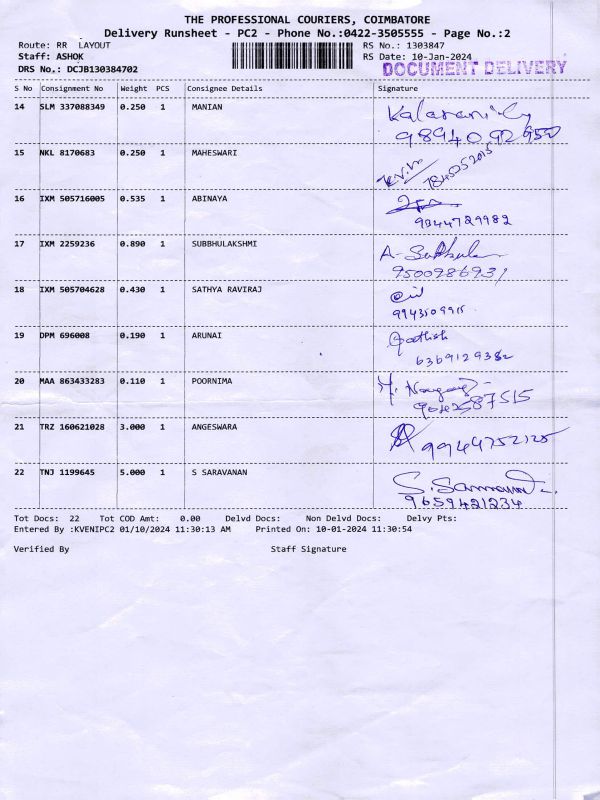 THE PROFESSIONAL COURIERS, COIMBATORE
Delivery Runsheet - PC2 - Phone No.:0422-3505555 - Page No.:2
Route: RR LAYOUT RS No.: 1303847
Staff: ASHOK RS Date: 10-Jan-2024
DRS No.: DCJB130384702 DOCUMENT DELIVERY
S No Consignment No Weight PCS Consignee Details Signature
14 SLM 337088349 0.250 1 MANIAN
15 NKL 8170683 0.250 1 MAHESWARI
16 IXM 505716005 0.535 1 ABINAYA
9344729982
17 IXM 2259236 0.890 1 SUBBHULAKSHMI
9500986931
18 IXM 505704628 0.430 1 SATHYA RAVIRAJ
9943509915
19 DPM 696008 0.190 1 ARUNAI
6369129382
20 MAA 863433283 0.110 1 POORNIMA
21 TRZ 160621028 3.000 1 ANGESWARA
9944752125
22 TNJ 1199645 5.000 1 S SARAVANAN
9659421234
Tot Docs: 22 Tot COD Amt: 0.00 Delvd Docs: Non Delvd Docs: Delvy Pts:
Entered By :KVENIPC2 01/10/2024 11:30:13 AM Printed On: 10-01-2024 11:30:54
Verified By Staff Signature